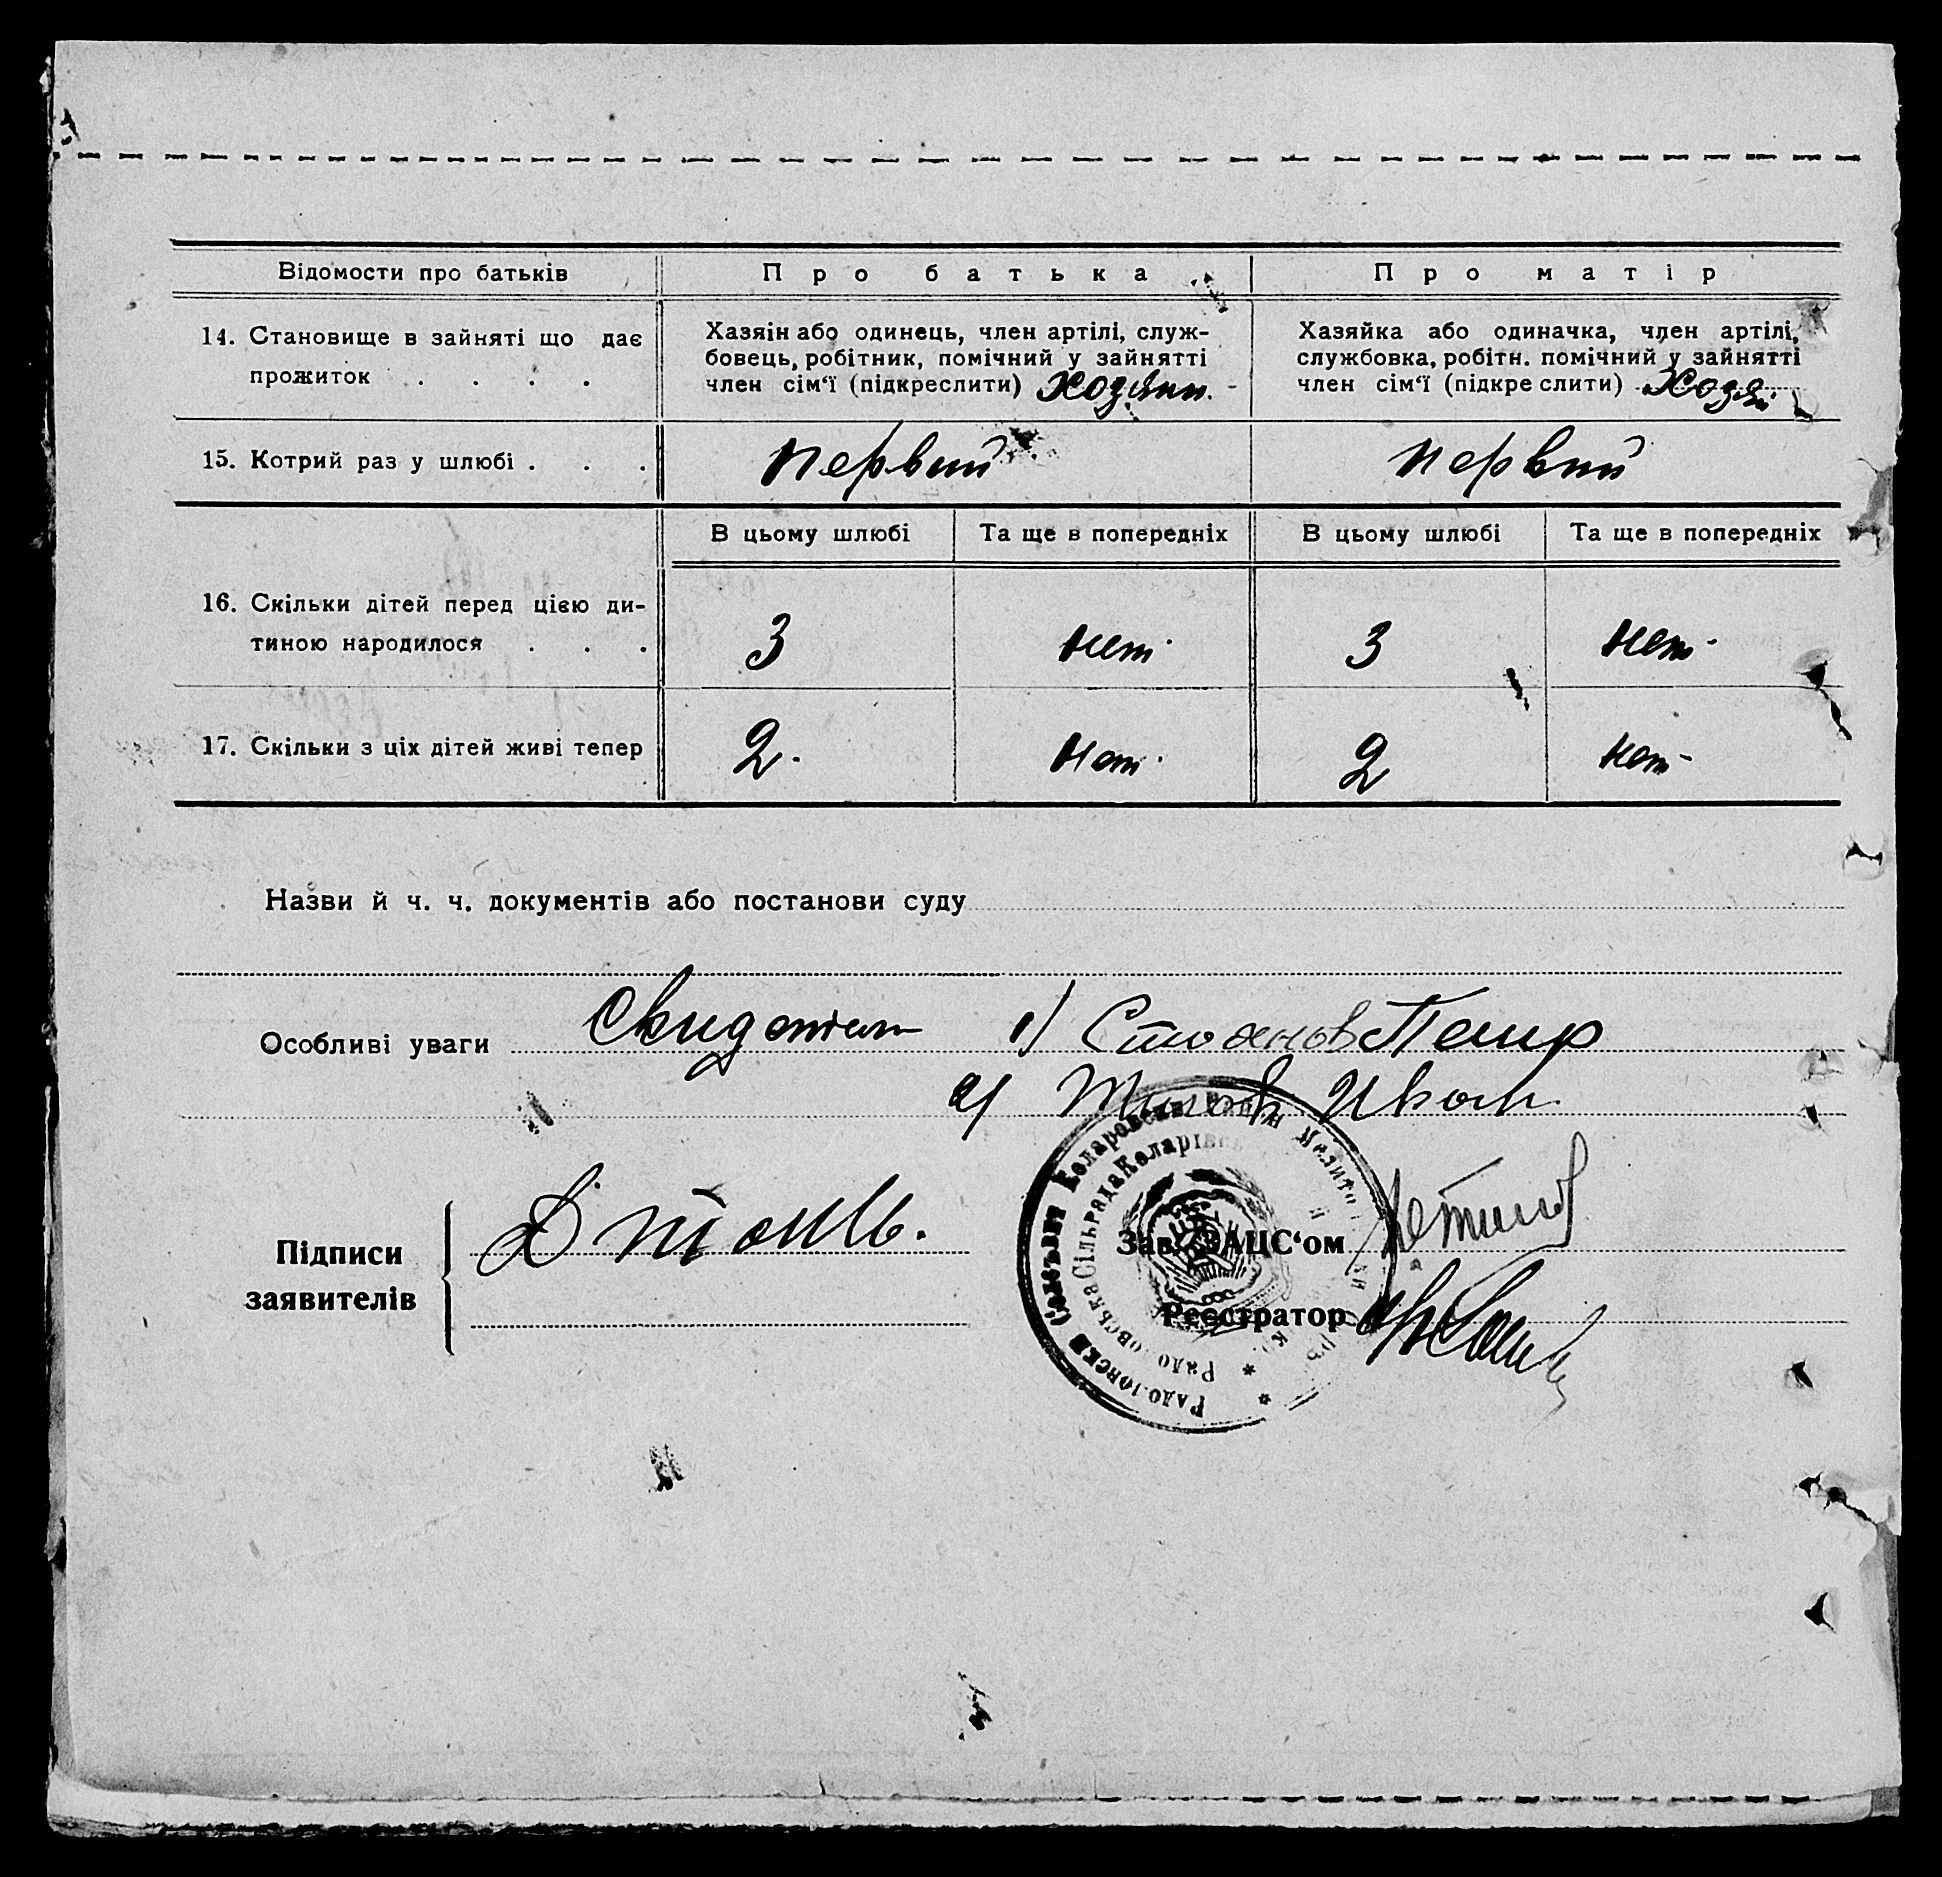 Відомости про батьків Про батька Про матір
14. Становище в зайняті що дає прожиток . . . .
Хазяін або одинець, член артілі, служ-
бовець, робітник, помічний у зайнятті
член сім‘ї (підкреслити) Хозяин.
Хазяйка або одиначка, член артілі,
службовка, робітн. помічний у зайнятті
член сім‘ї (підкреслити) Хозяй
15. Котрий раз у шлюбі . . . первий первий
В цьому шлюбі Та ще в попередніх В цьому шлюбі Та ще в попередніх
16. Скільки дітей перед цією ди-
тиною народилося . . . 3 нет. 3 нет.
17. Скільки з ціх дітей живі тепер 2. нет. 2 нет-
Назви й ч. ч. документів або постанови суду
Особливі уваги 1) Стоянов Петр
2) Иван
Підписи
заявителів
Зав. ЗАЦС‘ом
Реєстратор
Сільрада Коларівс